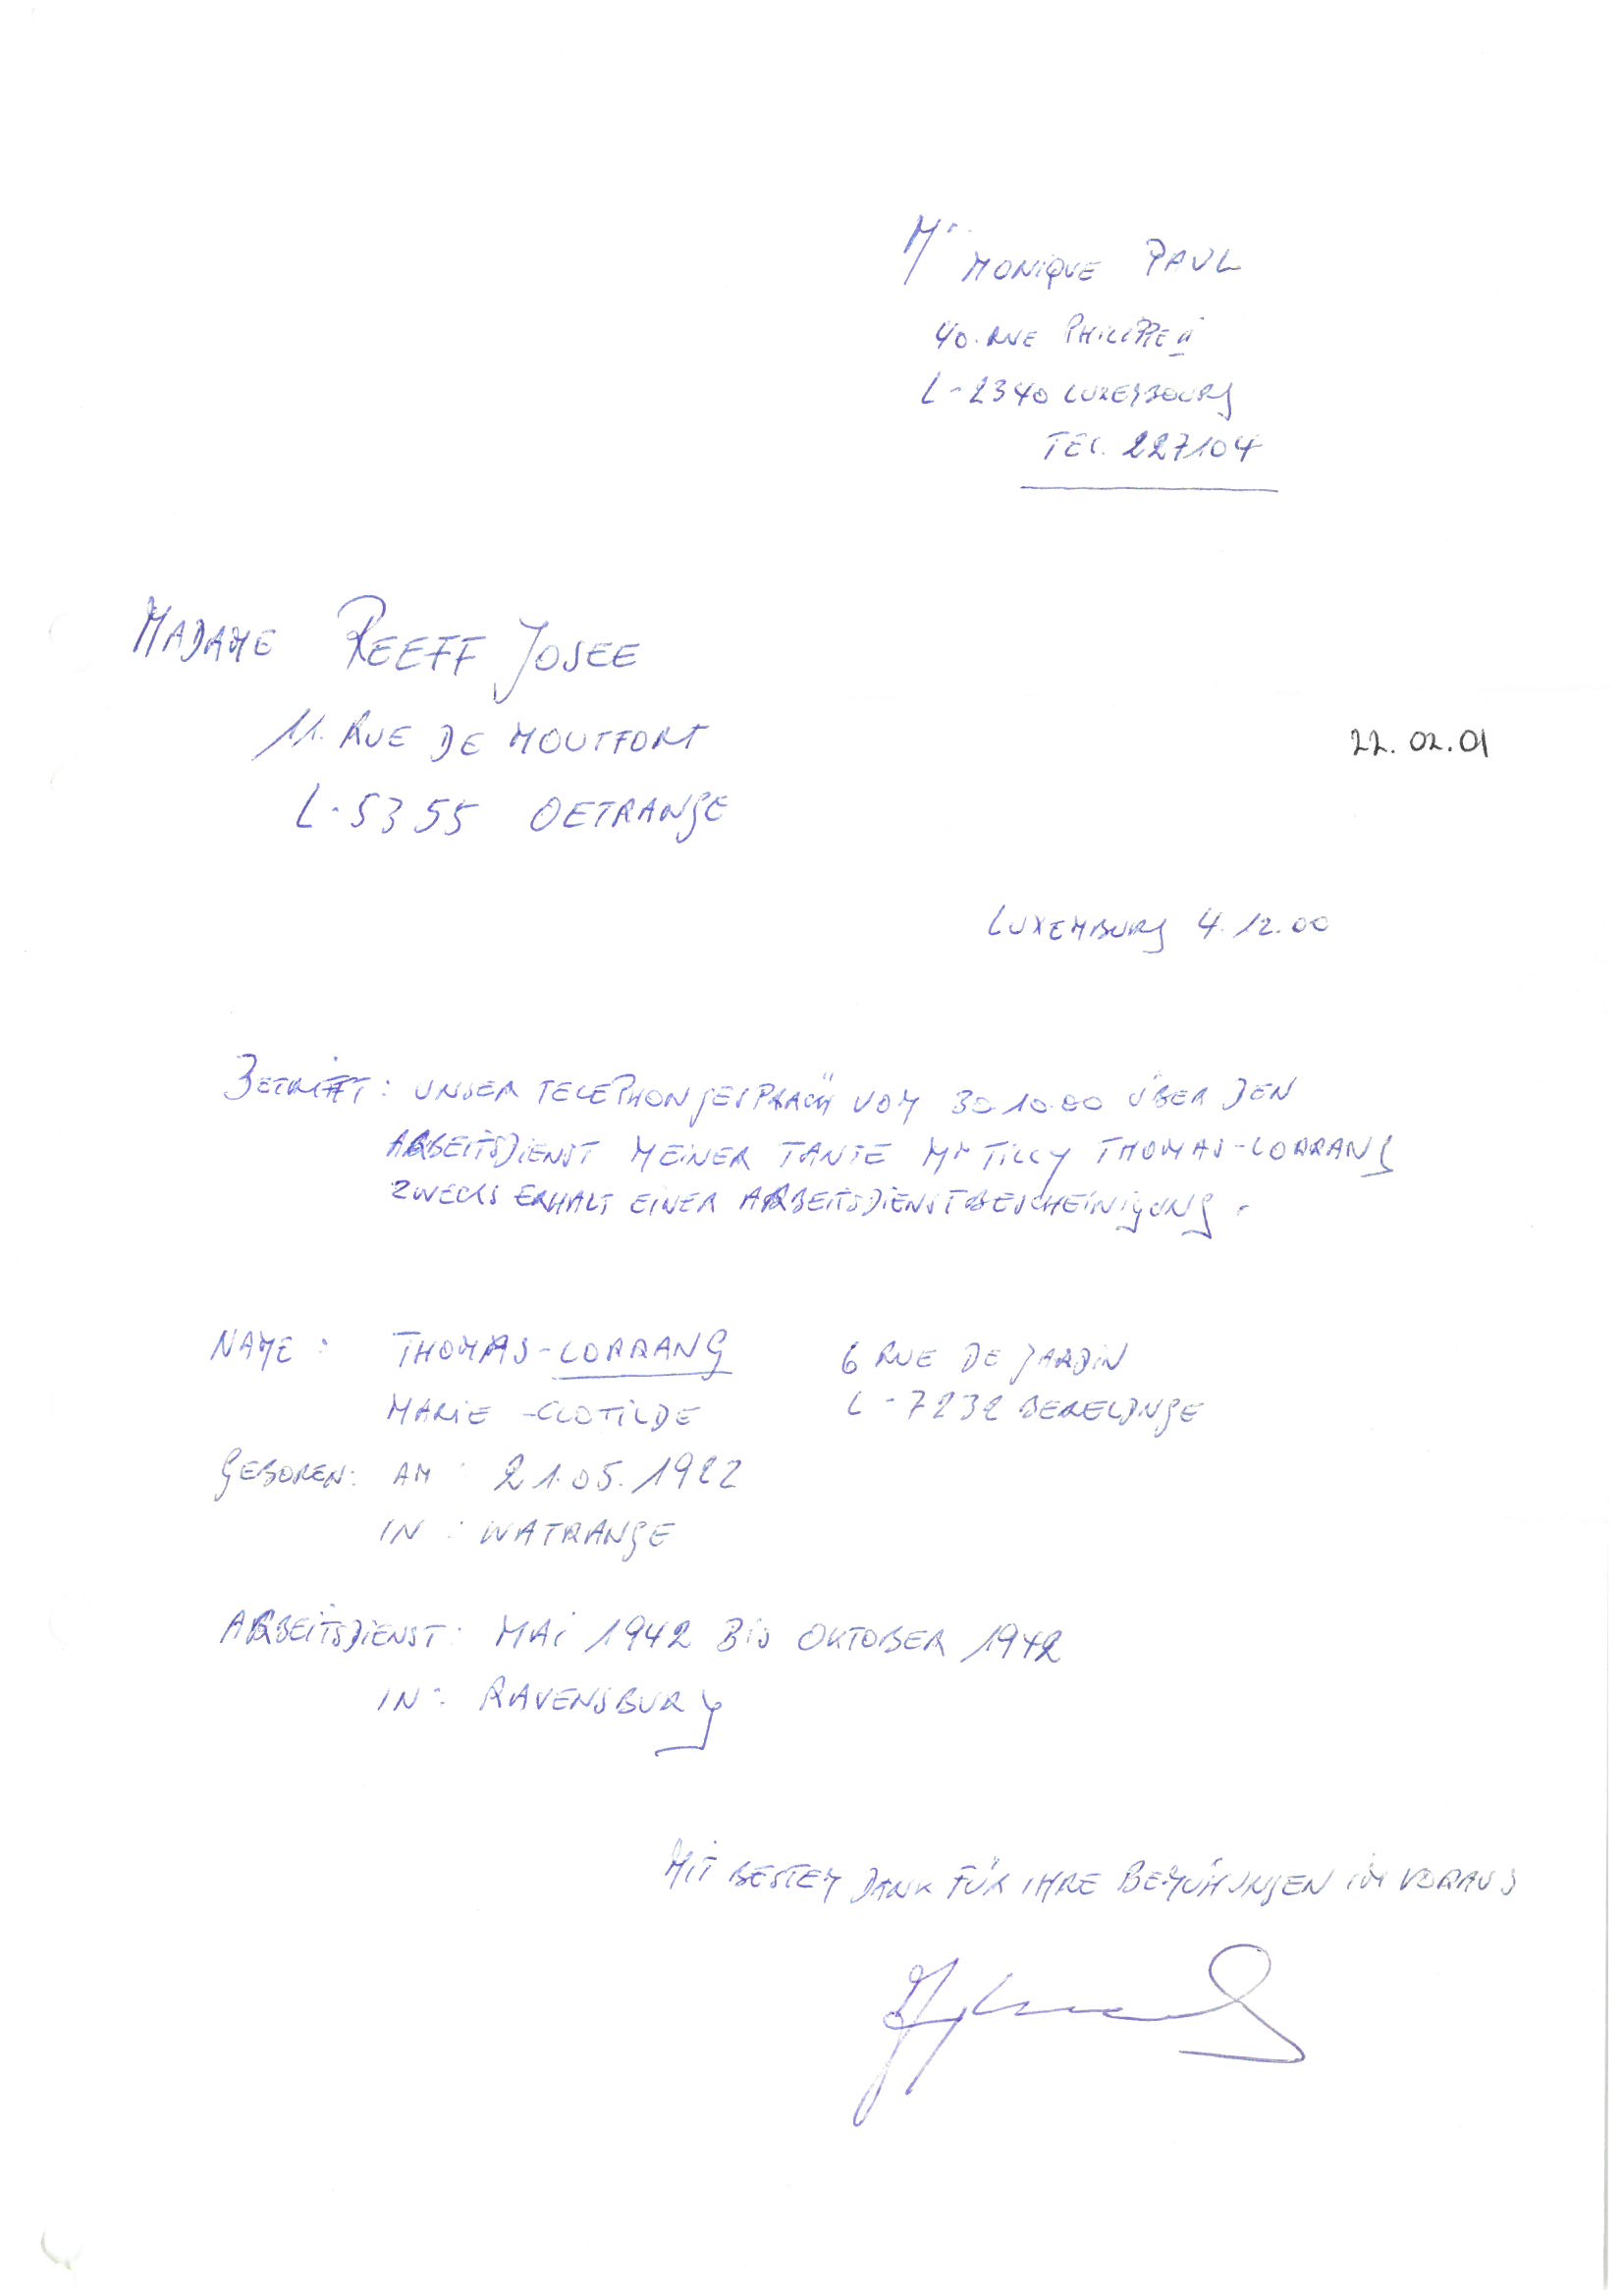 Mr. MONIQUE PAUL
40. RUE PHILIPPE II
L-2340 LUXEMBOURG
TEL. 227104
MADAME REEFF JOSEE
11. RUE DE MOUTFORT
22.02.01
L-5355 OETRANGE
LUXEMBURG 4.12.00
BETRIFFT: UNSER TELEPHONGESPRÄCH VOM 30.10.00 ÜBER DEN
ARBEITSDIENST MEINER TANTE Mr TILLY THOMAS-LORRANG
ZWECKS ERHALT EINER ARBEITSDIENSTBESCHEINIGUNG.
NAME: THOMAS-LORRANG 6 RUE DE JARDIN
MARIE-CLOTILDE L-7232 BERELDNGE
GEBOREN: AM: 21.05.1922
IN: WATRANGE
ARBEITSDIENST: MAI 1942 BIS OKTOBER 1942
IN: RAVENSBURG
MIT BESTEM DANK FÜR IHRE BEMÜHUNGEN IM VORAUS